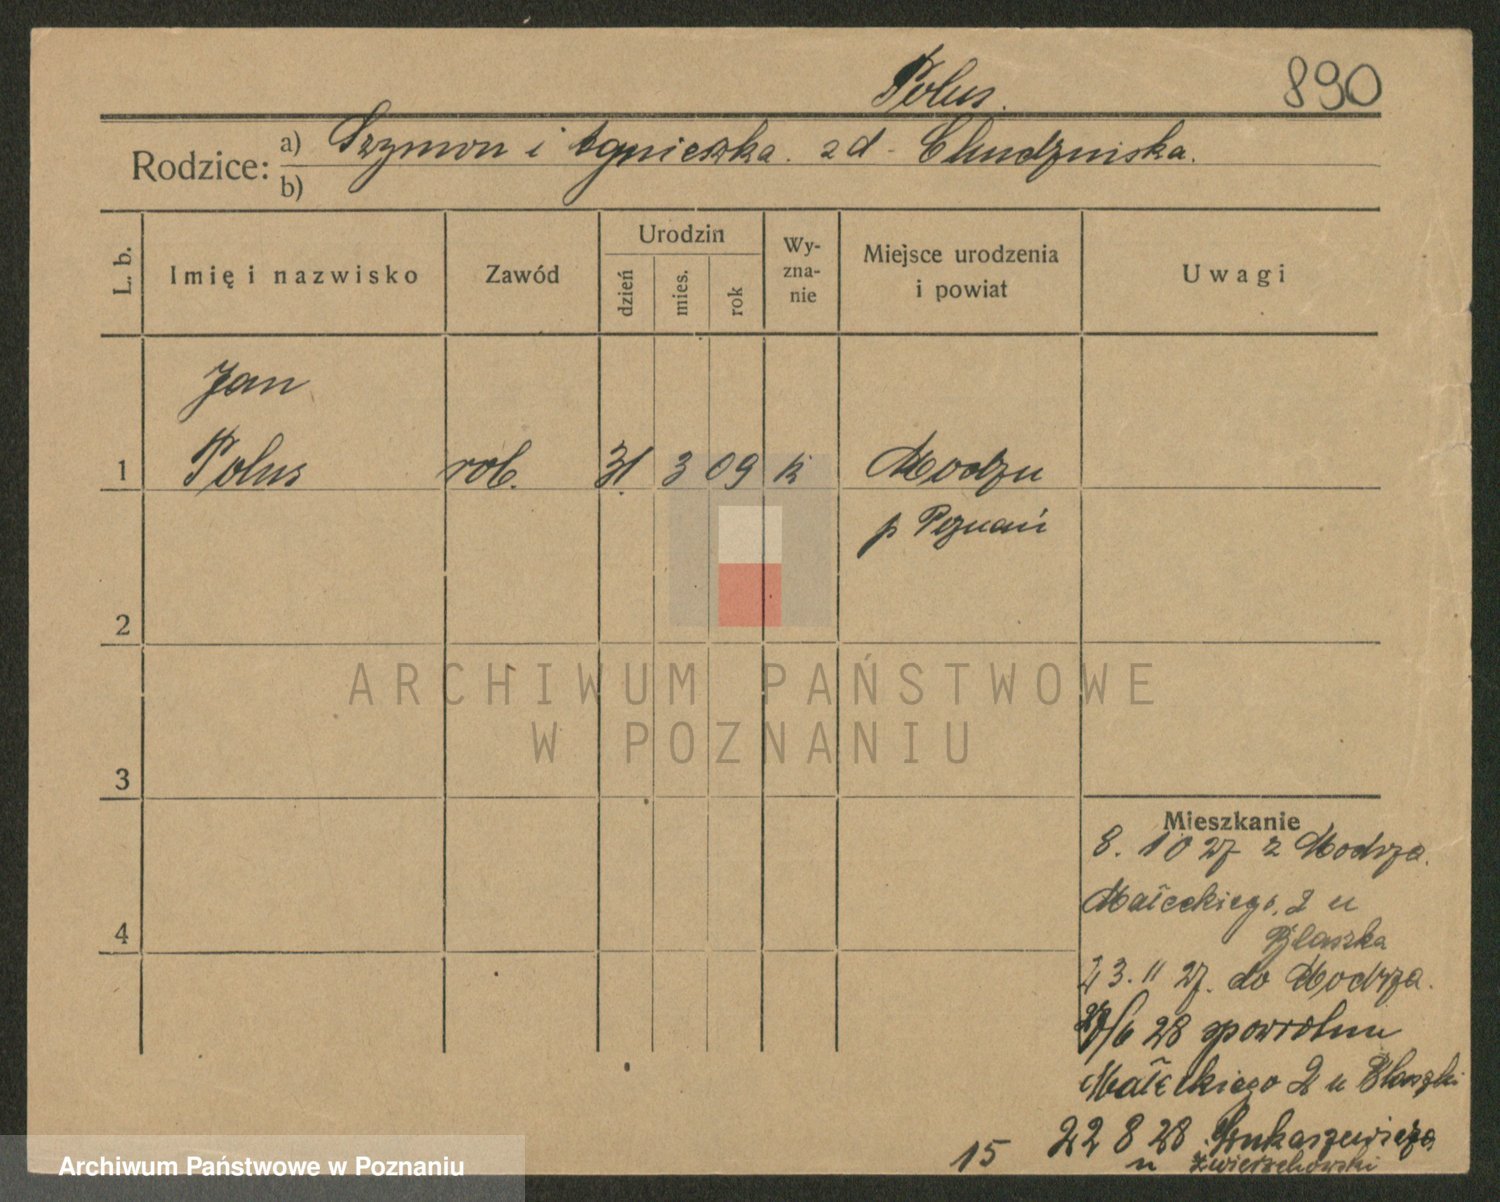 Polus.
890
Rodzice: a) Szymon i Agnieszka. zd. Chudzinska.
b)
L. b.
Imię i nazwisko
Zawód
Urodzin
dzień
mies.
rok
Wy-
zna-
nie
Miejsce urodzenia
i powiat
Uwagi
Jan
1 Polus rob. 31 3 09 k Modzu
p Poznań
2
ARCHIWUM PAŃSTWOWE
W POZNANIU
3
Mieszkanie
8. 10 27 z Modrza.
4
Małeckiego 2 u
Blaszka
23. 11 27. do Modrza.
/6 28 spowrotem
Małeckiego 2 u Blaszki
15 22 8 28 Łukaszewicza
u Zwierzchowski
Archiwum Państwowe w Poznaniu